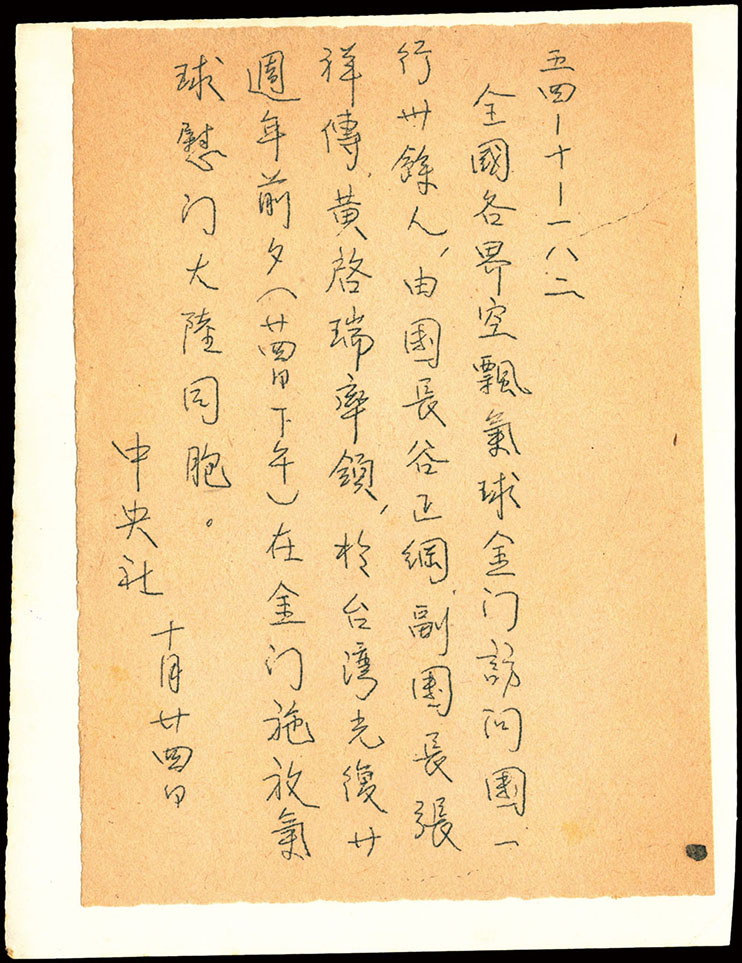 五四－十－一八二
全國各界空飄氣球金门訪问團一
行卅餘人，由團長谷正綱、副團長張
祥傳、黃啓瑞率領，於台湾光復廿
週年前夕（廿四日下午）在金门施放氣
球慰门大陸同胞。
中央社 十月廿四日